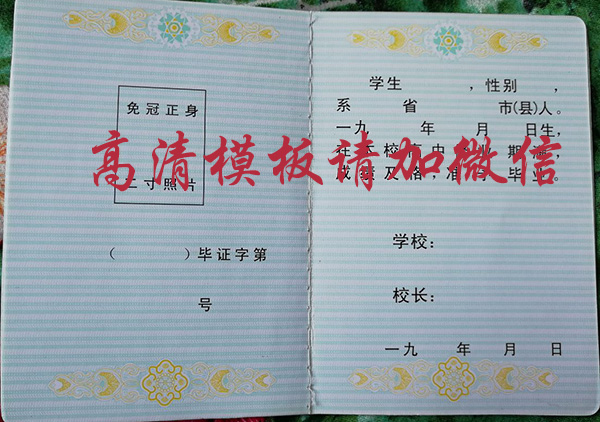 免冠正身
二寸照片
（ ）毕证字第
号
学生 ，性别 ，
系 省 市(县)人。
一九 年 月 日生，
在本校高中 业期满，
成绩及格，准予毕业。
学校：
校长：
一九 年 月 日
高清模板请加微信